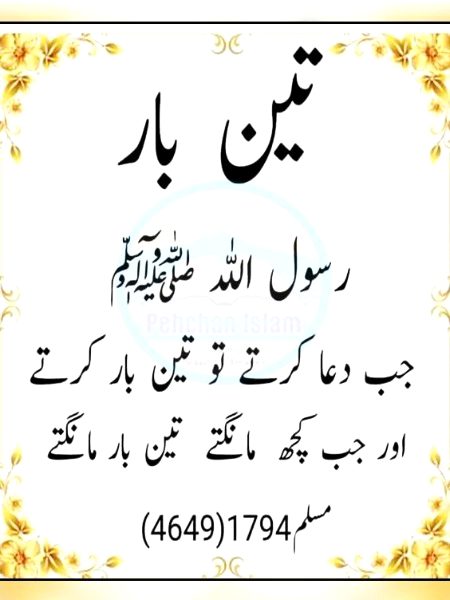 تین بار
رسول اللہ ﷺ
Pehchan Islam
جب دعا کرتے تو تین بار کرتے
اور جب کچھ مانگتے تین بار مانگتے
مسلم1794(4649)